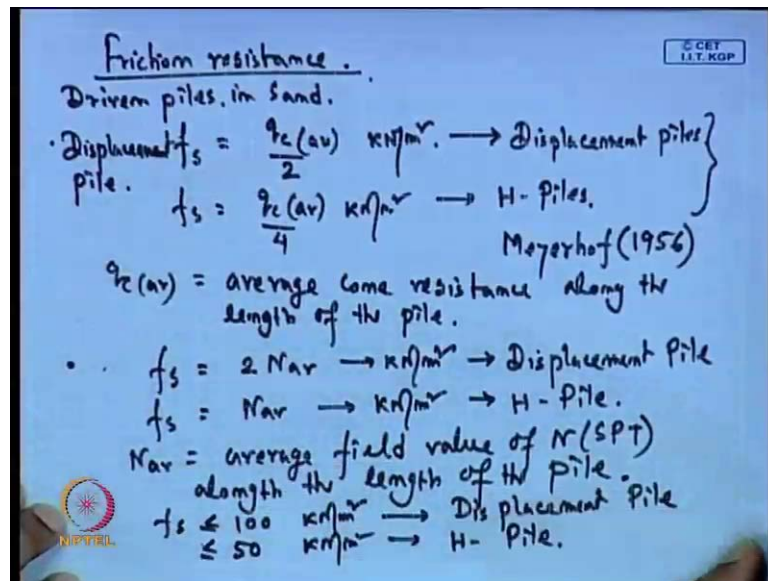 Friction resistance.
© CET
I.I.T. KGP
Driven piles. in Sand.
Displacement pile.
fs = qc(av)/2 kN/m² → Displacement piles
fs = qc(av)/4 kN/m² → H-Piles.
Meyerhof (1956)
qc(av) = average cone resistance along the
length of the pile.
fs = 2 Nav → kN/m² → Displacement Pile
fs = Nav → kN/m² → H-Pile.
Nav = average field value of N(SPT)
alongth the length of th pile.
fs ≤ 100 kN/m² → Displacement Pile
≤ 50 kN/m² → H- Pile.
NPTEL